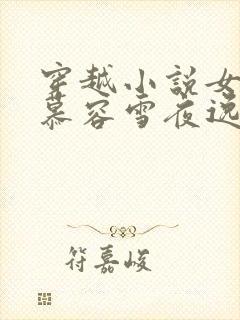 穿越小说女
慕容雪夜逸
符嘉峻